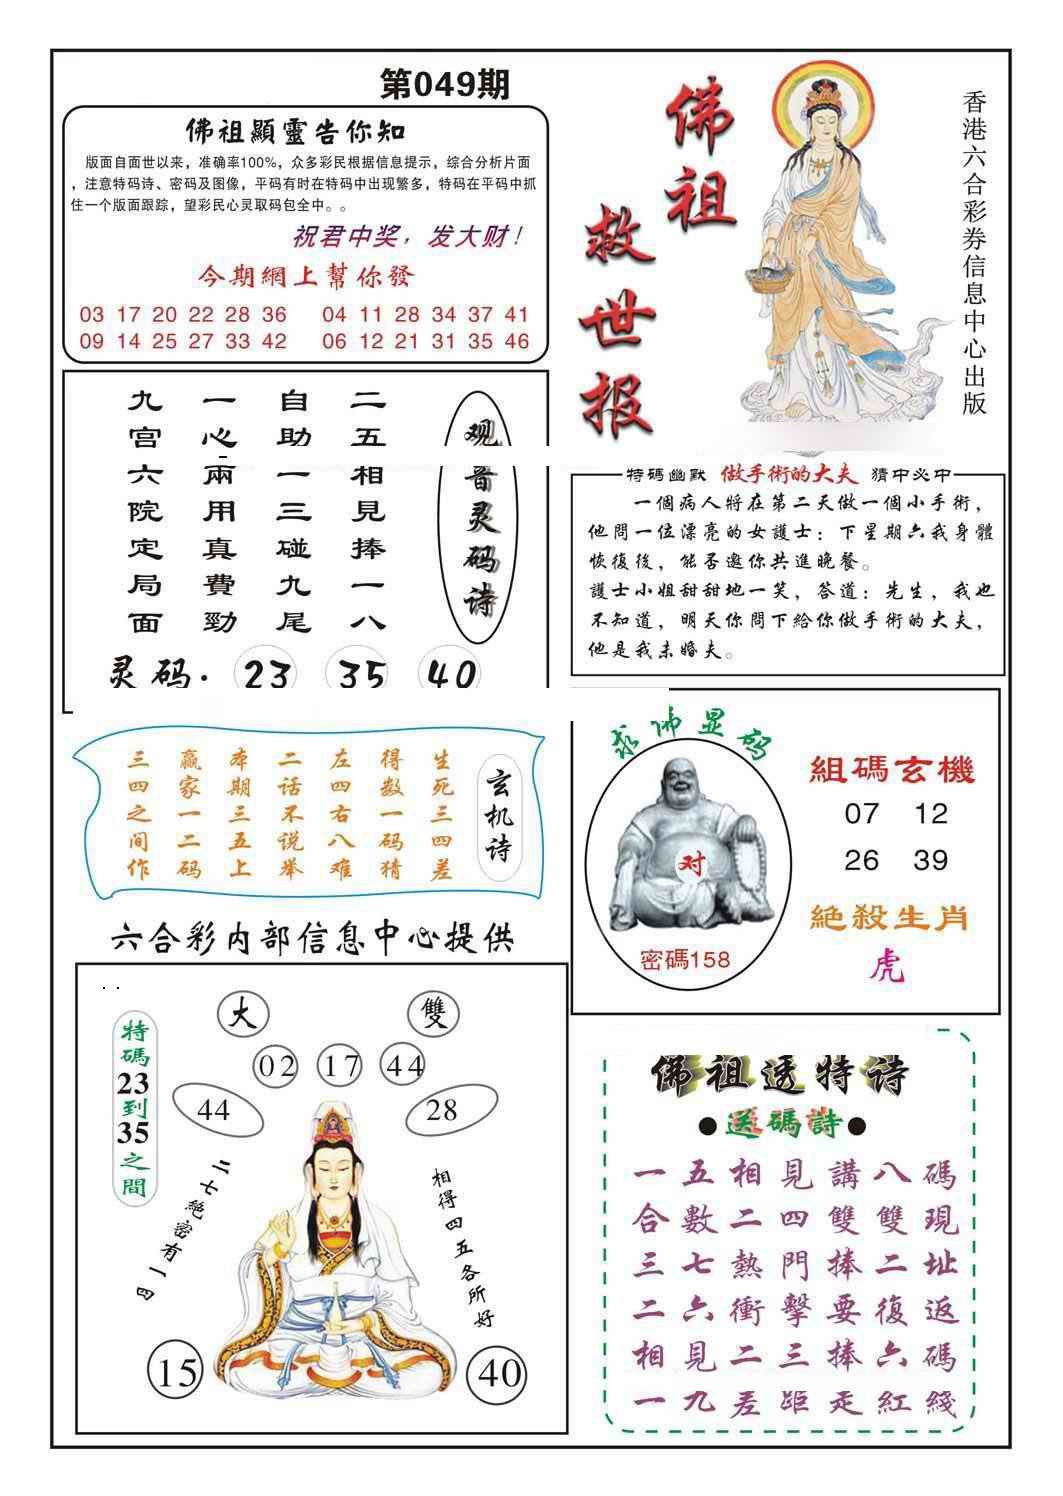 第049期
佛祖顯靈告你知
版面自面世以来，准确率100%，众多彩民根据信息提示，综合分析片面
，注意特码诗、密码及图像，平码有时在特码中出现繁多，特码在平码中抓
住一个版面跟踪，望彩民心灵取码包全中。。
祝君中奖，发大财！
今期網上幫你發
03 17 20 22 28 36 04 11 28 34 37 41
09 14 25 27 33 42 06 12 21 31 35 46
佛祖
救世报
香港六合彩券信息中心出版
观音灵码诗
二五相見捧一八
自助一三碰九尾
一心兩用真費勁
九宫六院定局面
灵码. 23 35 40
特碼幽默 做手術的大夫 猜中必中
一個病人將在第二天做一個小手術，
他問一位漂亮的女護士：下星期六我身體
恢復後，能否邀你共進晚餐。
護士小姐甜甜地一笑，答道：先生，我也
不知道，明天你問下給你做手術的大夫，
他是我未婚夫。
玄机诗
生死三四差
得数一码猜
左四右八难
二话不说举
本期三五上
赢家一二码
三四之间作
求佛显码
对
密碼158
組碼玄機
07 12
26 39
絕殺生肖
虎
六合彩内部信息中心提供
特碼23到35之間
大 雙
02 17 44
44 28
二七絕密有一四
相得四五各所好
15 40
佛祖透特诗
●送碼詩●
一五相見講八碼
合數二四雙雙現
三七熱門捧二址
二六衝擊要復返
相見二三捧六碼
一九差距走紅綫